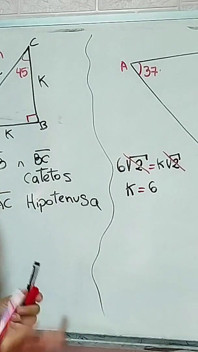 C
45
K
B
K
A
37
B ∩ BC
Catetos
AC Hipotenusa
6√2 = K√2
K = 6